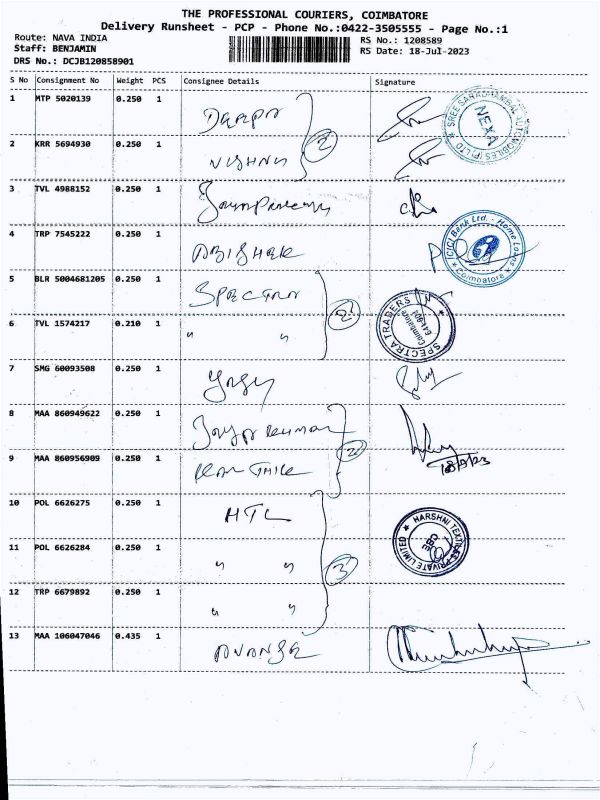 THE PROFESSIONAL COURIERS, COIMBATORE
Delivery Runsheet - PCP - Phone No.:0422-3505555 - Page No.:1
Route: NAVA INDIA
RS No.: 1208589
Staff: BENJAMIN
RS Date: 18-Jul-2023
DRS No.: DCJB120858901
S No Consignment No Weight PCS Consignee Details Signature
1 MTP 5020139 0.250 1
SREE SARADHAMBAL AUTOMOBILES (P) LTD
NEXA
2 KRR 5694930 0.250 1 VISHNU
2
3 TVL 4988152 0.250 1
4 TRP 7545222 0.250 1 ABISHEK
ICICI Bank Ltd. - Home Loans
Coimbatore
5 BLR 5004681205 0.250 1 SPECTRA
2
SPECTRA TRADERS
Coimbatore
6 TVL 1574217 0.210 1 " "
7 SMG 60093508 0.250 1
8 MAA 860949622 0.250 1 Jayakumar
2
9 MAA 860956909 0.250 1 KARTHIK
10 POL 6626275 0.250 1 HTL
HARSHNI TEXTILES PRIVATE LIMITED
CBE
11 POL 6626284 0.250 1 " "
3
12 TRP 6679892 0.250 1 " "
13 MAA 106047046 0.435 1